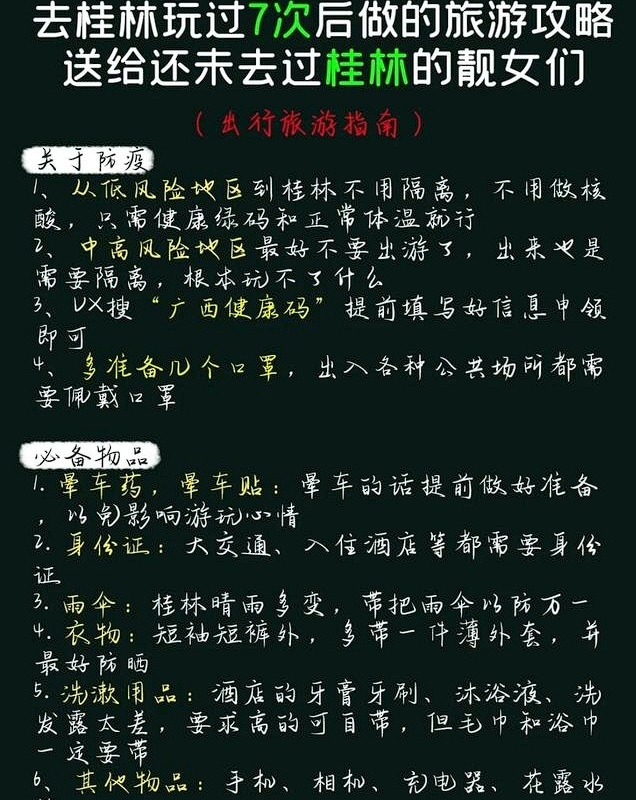 去桂林玩过7次后做的旅游攻略
送给还未去过桂林的靓女们
（出行旅游指南）
关于防疫
1、从低风险地区到桂林不用隔离，不用做核
酸，只需健康绿码和正常体温就行
2、中高风险地区最好不要出游了，出来也是
需要隔离，根本玩不了什么
3、VX搜“广西健康码”提前填写好信息申领
即可
4、多准备几个口罩，出入各种公共场所都需
要佩戴口罩
必备物品
1.晕车药，晕车贴：晕车的话提前做好准备
，以免影响游玩心情
2.身份证：大交通、入住酒店等都需要身份
证
3.雨伞：桂林晴雨多变，带把雨伞以防万一
4.衣物：短袖短裤外，多带一件薄外套，并
最好防晒
5.洗漱用品：酒店的牙膏牙刷、沐浴液、洗
发露太差，要求高的可自带，但毛巾和浴巾
一定要带
6、其他物品：手机、相机、充电器、花露水